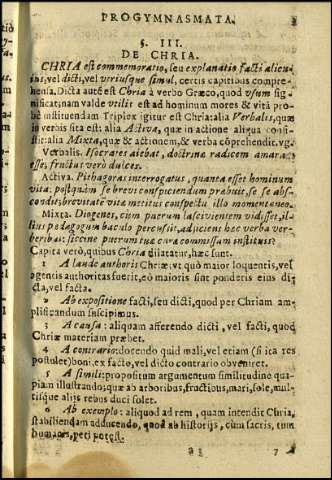 PROGYMNASMATA. 3
§. III.
DE CHRIA.
CHRIA est commemoratio, seu explanatio facti alicu-
ius, vel dicti, vel vtriusque simul, certis capitibus comprehe-
hensa. Dicta autē est Chria à verbo Græco, quod vsum sig-
nificat; nam valde vtilis est ad hominum mores & vitā pro-
bè instituendam Triplex igitur est Chria: alia Verbalis, quæ
in verbis sita est: alia Activa, quæ in actione aliqua consi-
stit: alia Mixta, quæ & actionem, & verba cōprehendit. vg.
Verbalis. Isocrates aiebat, doctrinæ radicem amaram
esse, fructus verò dulces.
Activa. Pithagoras interrogatus, quanta esset hominum
vita; postquàm se breui conspiciendum præbuit, se se abs-
condidit; brevitatē vitæ metitus conspectu illo momentaneo.
Mixta. Diogenes, cum puerum lascivientem vidisset, il-
lius pedagogum baculo percussit, adjiciens hæc verba ver-
beribus: siccine puerum tuæ curæ commissum instituis?
Capita verò, quibus Chria dilatatur, hæc sunt.
1 A laude authoris Chriæ, vt quò maior loquentis, vel
agentis authoritas fuerit, eò maioris sint ponderis eius di-
cta, vel facta.
2 Ab expositione facti, seu dicti, quod per Chriam am-
plificandum suscipimus.
3 A causa: aliquam afferendo dicti, vel facti, quod
Chriæ materiam præbet.
4 A contrario: docendo quid mali, vel etiam (si ita res
postulet) boni, ex facto, vel dicto contrario obveniret.
5 A simili: propositum argumentum similitudine qua-
piam illustrando; quæ ab arboribus, fructibus, mari, sole, mul-
tisque alijs rebus duci solet.
6 Ab exemplo: aliquod ad rem, quam intendit Chria,
stabiliendam adducendo, quod ab historijs, cùm sacris, tum
humanis, peti potest.
7